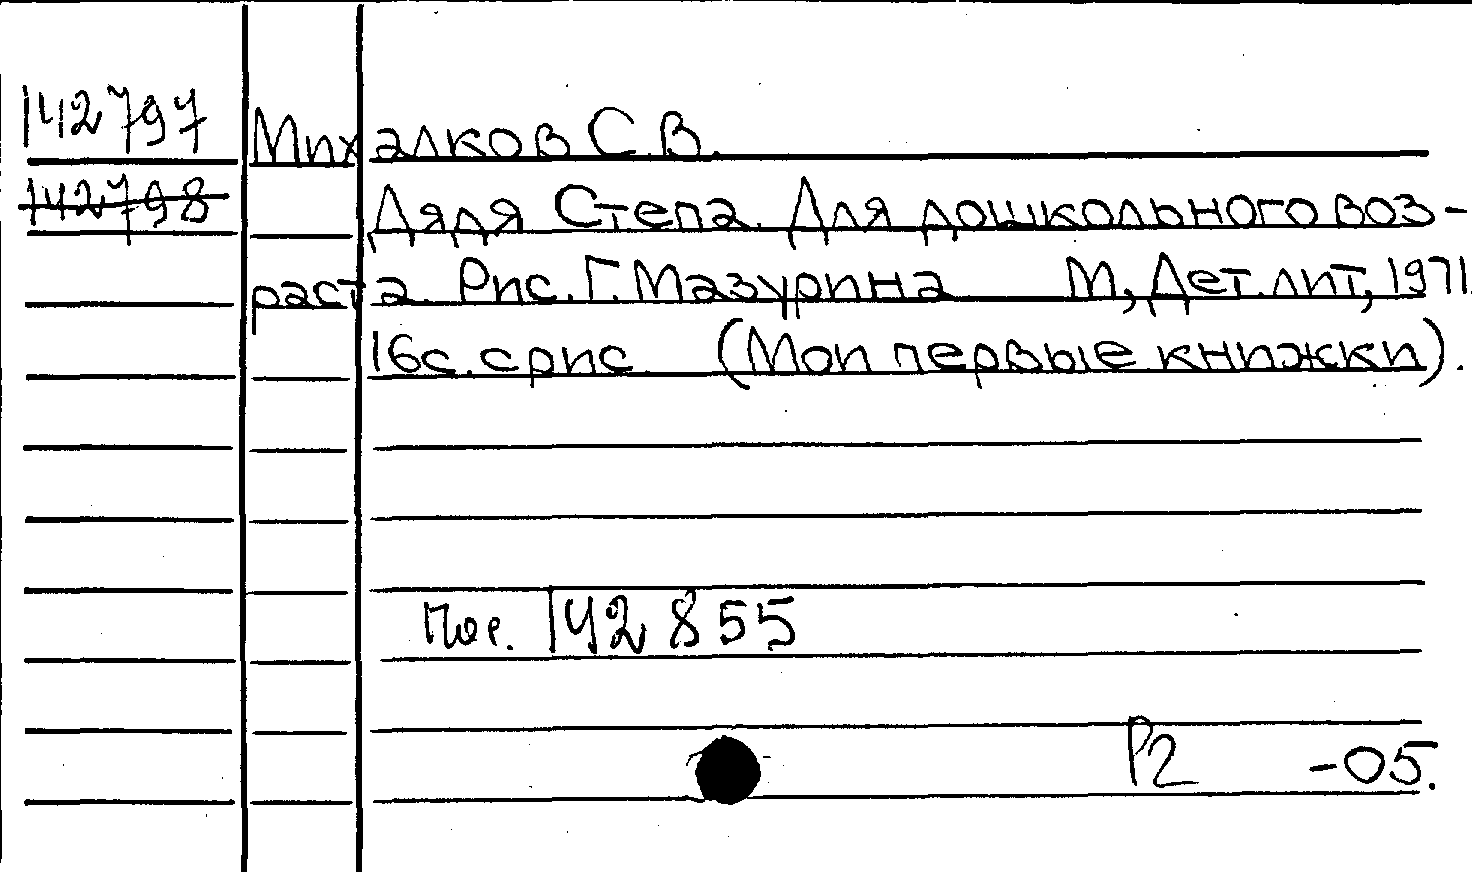 142797 Михалков С.В.
142798 Дядя Степа. Для дошкольного воз-
раста. Рис. Г. Мазурина М, Дет. лит, 1971.
16с. с рис. (Мои первые книжки).
142855
Р2 -05.